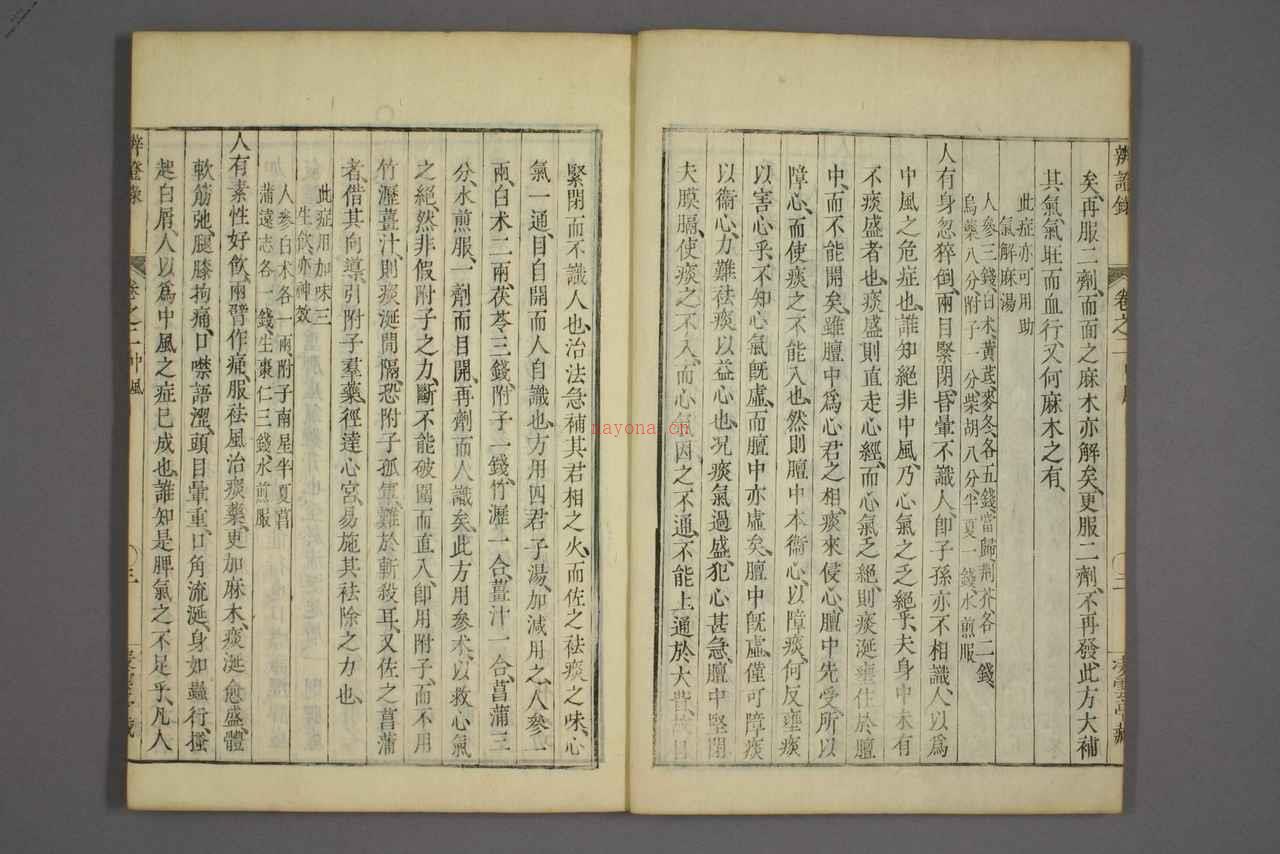 辨證錄 卷之二中風 二
矣、再服二劑、而面之麻木亦解矣、更服二劑、不再發、此方大補
其氣、氣旺而血行、又何麻木之有、
此症亦可用助
氣解麻湯
人參三錢白朮、黃芪、麥冬、各五錢、當歸、荊芥各二錢、
烏藥八分附子一分柴胡八分半夏一錢、水煎服
人有身忽猝倒、兩目緊閉、昏暈不識人、卽子孫亦不相識、人以爲
中風之危症也、誰知絕非中風、乃心氣之乏絕乎、夫身中未有
不痰盛者也、痰盛則直走心經、而心氣乏絕、則痰涎壅住於膻
中、而不能開矣、雖膻中爲心君之相、痰來侵心、膻中先受、所以
障心、而使痰之不能入也、然則膻中本衞心、以障痰、何反壅痰
以害心乎、不知心氣旣虛、而膻中亦虛矣、膻中旣虛、僅可障痰
以衞心、力難祛痰以益心也、况痰氣過盛、犯心甚急、膻中堅閉
夫膜膈、使痰之不入、而心氣因之不通、不能上通於大眥、故目
緊閉而不識人也、治法急補其君相之火、而佐之祛痰之味、心
氣一通、目自開而人自識也、方用四君子湯、加減用之、人參一
兩、白朮二兩、茯苓三錢、附子一錢、竹瀝一合、薑汁一合、菖蒲三
分、水煎服、一劑而目開、再劑而人識矣、此方用參朮、以救心氣
之絕、然非假附子之力、斷不能破圍而直入、卽用附子、而不用
竹瀝薑汁、則痰涎間隔、恐附子孤軍、難於斬殺耳、又佐之菖蒲
者借其向導、引附子羣藥、徑達心宮、易施其袪除之力也、
此症用加味三
生飲、亦神效
人參白朮各一兩附子南星半夏菖
蒲遠志各一錢、生棗仁三錢、水煎服
人有素性好飲、兩臂作痛、服祛風治痰藥、更加麻木、痰涎愈盛、體
軟筋弛、腿膝拘痛、口噤語澀、頭目暈重、口角流涎、身如蟲行、搔
起白屑、人以爲中風之症已成也、誰知是脾氣之不足乎、凡人
辨證錄 卷之二中風 三
nayona.cn